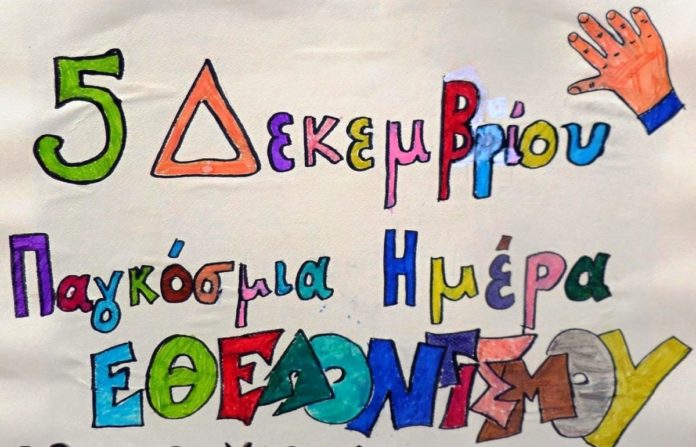 5 Δεκεμβρίου
Παγκόσμια Ημέρα
ΕΘΕΛΟΝΤΙΣΜΟΥ